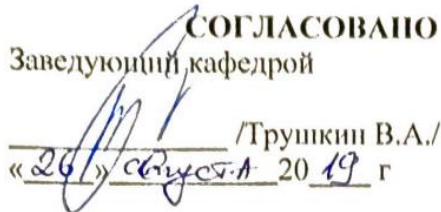 СОГЛАСОВАНО
Заведующий кафедрой
/Трушкин В.А./
«26» августа 2019 г